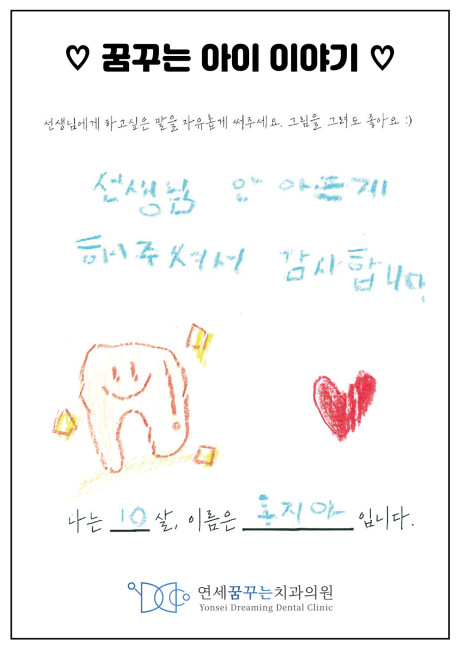 ♡ 꿈꾸는 아이 이야기 ♡
선생님에게 하고싶은 말을 자유롭게 써주세요. 그림을 그려도 좋아요 :)
선생님 안 아프게
해주셔서 감사합니다.
나는 10 살, 이름은 홍지아 입니다.
연세꿈꾸는치과의원
Yonsei Dreaming Dental Clinic